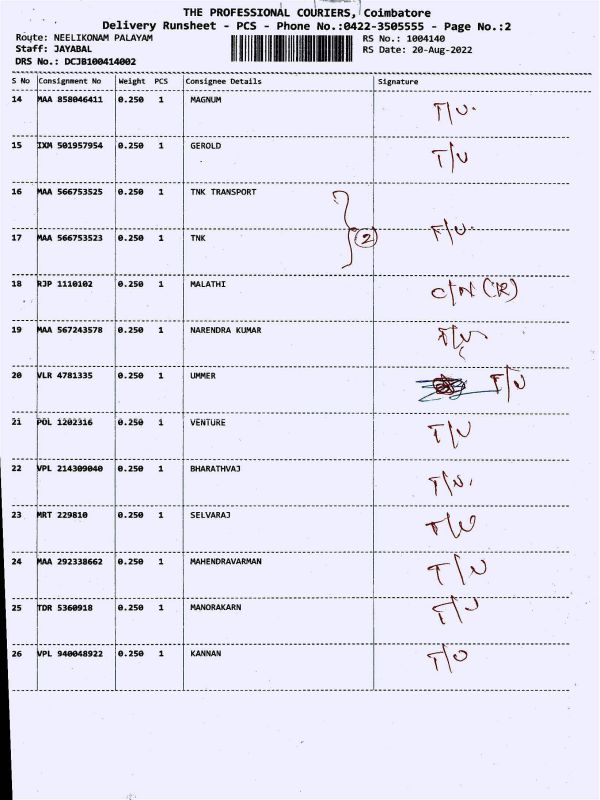 THE PROFESSIONAL COURIERS, Coimbatore
Delivery Runsheet - PCS - Phone No.:0422-3505555 - Page No.:2
Route: NEELIKONAM PALAYAM RS No.: 1004140
Staff: JAYABAL RS Date: 20-Aug-2022
DRS No.: DCJB100414002
S No Consignment No Weight PCS Consignee Details Signature
14 MAA 858046411 0.250 1 MAGNUM T/U.
15 IXM 501957954 0.250 1 GEROLD T/U
16 MAA 566753525 0.250 1 TNK TRANSPORT
17 MAA 566753523 0.250 1 TNK 2
18 RJP 1110102 0.250 1 MALATHI C/N (R)
19 MAA 567243578 0.250 1 NARENDRA KUMAR
20 VLR 4781335 0.250 1 UMMER T/U
21 POL 1202316 0.250 1 VENTURE T/U
22 VPL 214309040 0.250 1 BHARATHVAJ
23 MRT 229810 0.250 1 SELVARAJ
24 MAA 292338662 0.250 1 MAHENDRAVARMAN T/U
25 TDR 5360918 0.250 1 MANORAKARN T/U
26 VPL 940048922 0.250 1 KANNAN